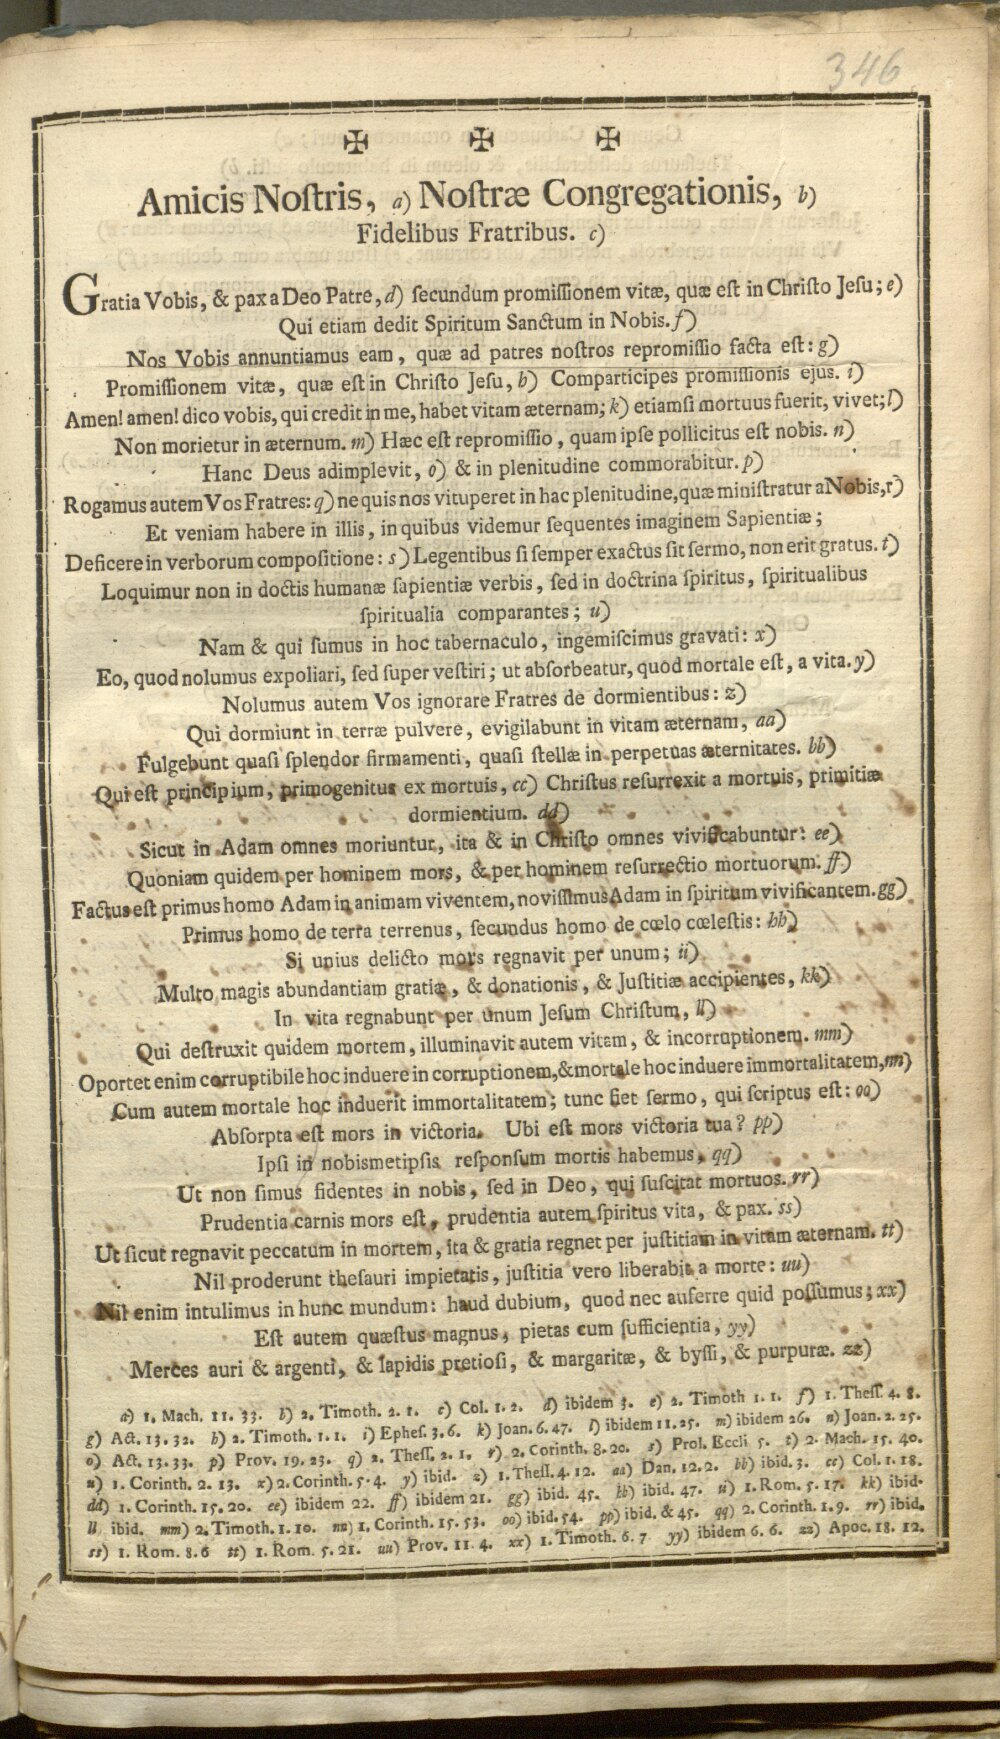 346
✠ ✠ ✠
Amicis Noſtris, a) Noſtræ Congregationis, b)
Fidelibus Fratribus. c)
Gratia Vobis, & pax a Deo Patre, d) ſecundum promiſſionem vitæ, quæ eſt in Chriſto Jeſu; e)
Qui etiam dedit Spiritum Sanctum in Nobis. f)
Nos Vobis annuntiamus eam, quæ ad patres noſtros repromiſſio facta eſt: g)
Promiſſionem vitæ, quæ eſt in Chriſto Jeſu, h) Comparticipes promiſſionis ejus. i)
Amen! amen! dico vobis, qui credit in me, habet vitam æternam; k) etiamſi mortuus fuerit, vivet; l)
Non morietur in æternum. m) Hæc eſt repromiſſio, quam ipſe pollicitus eſt nobis. n)
Hanc Deus adimplevit, o) & in plenitudine commorabitur. p)
Rogamus autem Vos Fratres: q) ne quis nos vituperet in hac plenitudine, quæ miniſtratur a Nobis, r)
Et veniam habere in illis, in quibus videmur ſequentes imaginem Sapientiæ;
Deficere in verborum compoſitione: s) Legentibus ſi ſemper exactus ſit ſermo, non erit gratus. t)
Loquimur non in doctis humanæ ſapientiæ verbis, ſed in doctrina ſpiritus, ſpiritualibus
ſpiritualia comparantes; u)
Nam & qui ſumus in hoc tabernaculo, ingemiſcimus gravati: x)
Eo, quod nolumus expoliari, ſed ſuperveſtiri; ut abſorbeatur, quod mortale eſt, a vita. y)
Nolumus autem Vos ignorare Fratres de dormientibus: z)
Qui dormiunt in terræ pulvere, evigilabunt in vitam æternam, aa)
Fulgebunt quaſi ſplendor firmamenti, quaſi ſtellæ in perpetuas æternitates. bb)
Qui eſt principium, primogenitus ex mortuis, cc) Chriſtus reſurrexit a mortuis, primitiæ
dormientium. dd)
Sicut in Adam omnes moriuntur, ita & in Chriſto omnes vivificabuntur: ee)
Quoniam quidem per hominem mors, & per hominem reſurrectio mortuorum. ff)
Factus eſt primus homo Adam in animam viventem, noviſſimus Adam in ſpiritum vivificantem. gg)
Primus homo de terra terrenus, ſecundus homo de cœlo cœleſtis: hh)
Si unius delicto mors regnavit per unum; ii)
Multo magis abundantiam gratiæ, & donationis, & Juſtitiæ accipientes, kk)
In vita regnabunt per unum Jeſum Chriſtum, ll)
Qui deſtruxit quidem mortem, illuminavit autem vitam, & incorruptionem. mm)
Oportet enim corruptibile hoc induere incorruptionem, & mortale hoc induere immortalitatem, nn)
Cum autem mortale hoc induerit immortalitatem; tunc fiet ſermo, qui ſcriptus eſt: oo)
Abſorpta eſt mors in victoria. Ubi eſt mors victoria tua? pp)
Ipſi in nobismetipſis reſponſum mortis habemus, qq)
Ut non ſimus fidentes in nobis, ſed in Deo, qui ſuſcitat mortuos. rr)
Prudentia carnis mors eſt, prudentia autem ſpiritus vita, & pax. ss)
Ut ſicut regnavit peccatum in mortem, ita & gratia regnet per juſtitiam in vitam æternam. tt)
Nil proderunt theſauri impietatis, juſtitia vero liberabit a morte: uu)
Nil enim intulimus in hunc mundum: haud dubium, quod nec auferre quid poſſumus; xx)
Eſt autem quæſtus magnus, pietas cum ſufficientia, yy)
Merces auri & argenti, & lapidis pretioſi, & margaritæ, & byſſi, & purpuræ. zz)
a) 1. Mach. 11. 33. b) 2. Timoth. 2. 1. c) Col. 1. 2. d) ibidem 3. e) 2. Timoth 1. 1. f) 1. Theſſ. 4. 8.
g) Act. 13. 32. h) 2. Timoth. 1. 1. i) Epheſ. 3. 6. k) Joan. 6. 47. l) ibidem 11. 25. m) ibidem 26. n) Joan. 2. 25.
o) Act. 13. 33. p) Prov. 19. 23. q) 2. Theſſ. 2. 1. r) 2. Corinth. 8. 20. s) Prol. Eccli 5. t) 2. Mach. 15. 40.
u) 1. Corinth. 2. 13. x) 2. Corinth. 5. 4. y) ibid. z) 1. Theſſ. 4. 12. aa) Dan. 12. 2. bb) ibid. 3. cc) Col. 1. 18.
dd) 1. Corinth. 15. 20. ee) ibidem 22. ff) ibidem 21. gg) ibid. 45. hh) ibid. 47. ii) 1. Rom. 5. 17. kk) ibid.
ll ibid. mm) 2. Timoth. 1. 10. nn) 1. Corinth. 15. 53. oo) ibid. 54. pp) ibid. & 45. qq) 2. Corinth. 1. 9. rr) ibid.
ss) 1. Rom. 8. 6 tt) 1. Rom. 5. 21. uu) Prov. 11. 4. xx) 1. Timoth. 6. 7 yy) ibidem 6. 6. zz) Apoc. 18. 12.